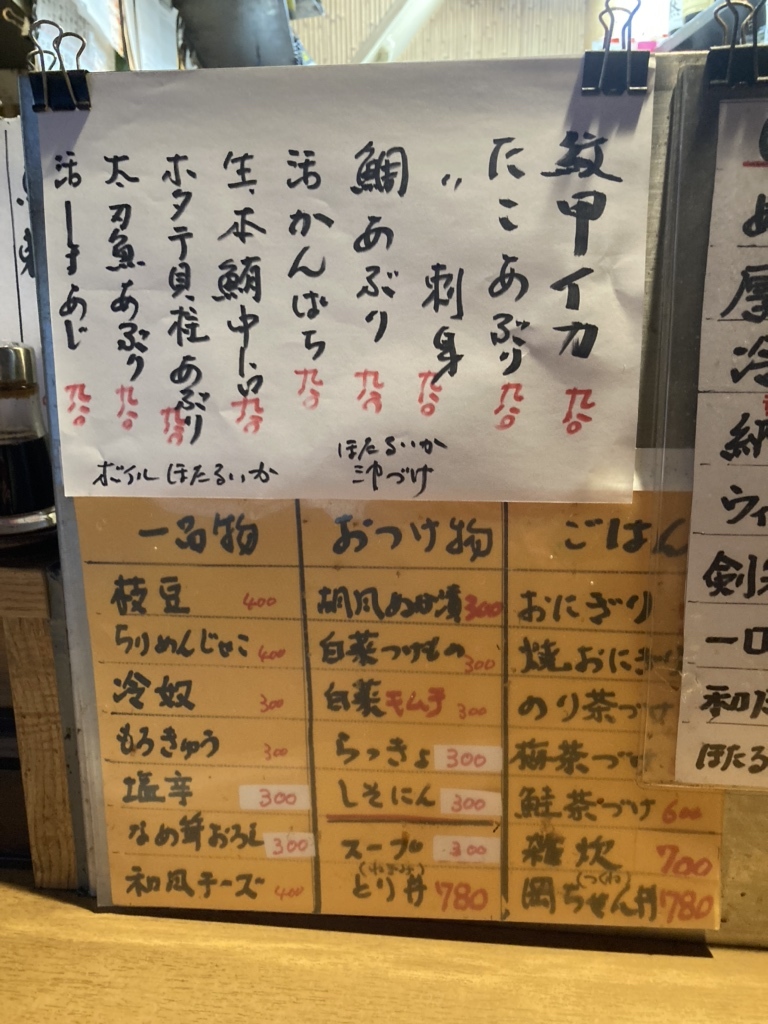 紋甲イカ 九八〇
たこあぶり 九八〇
〃 刺身 九八〇
鯛あぶり 九八〇
活かんぱち 九八〇
生本鮪中トロ 九八〇
ホタテ貝柱あぶり 九八〇
太刀魚あぶり 九八〇
活しまあじ 九八〇
ほたるいか
沖づけ
ボイルほたるいか
一品物
枝豆 400
ちりめんじゃこ 400
冷奴 300
もろきゅう 300
塩辛 300
なめ茸おろし 300
和風チーズ 400
おつけ物
胡瓜ぬか漬 300
白菜つけもの 300
白菜キムチ 300
らっきょ 300
しそにんにん 300
スープ 300
(ねぎみ)
とり丼 780
ごはん
おにぎり
焼おにぎ
のり茶づけ
梅茶づけ
鮭茶づけ 600
雑炊 700
(つくね)
岡ちゃん丼 780
め
厚
冷
納
ウィ
剣
一口
和
ほたる